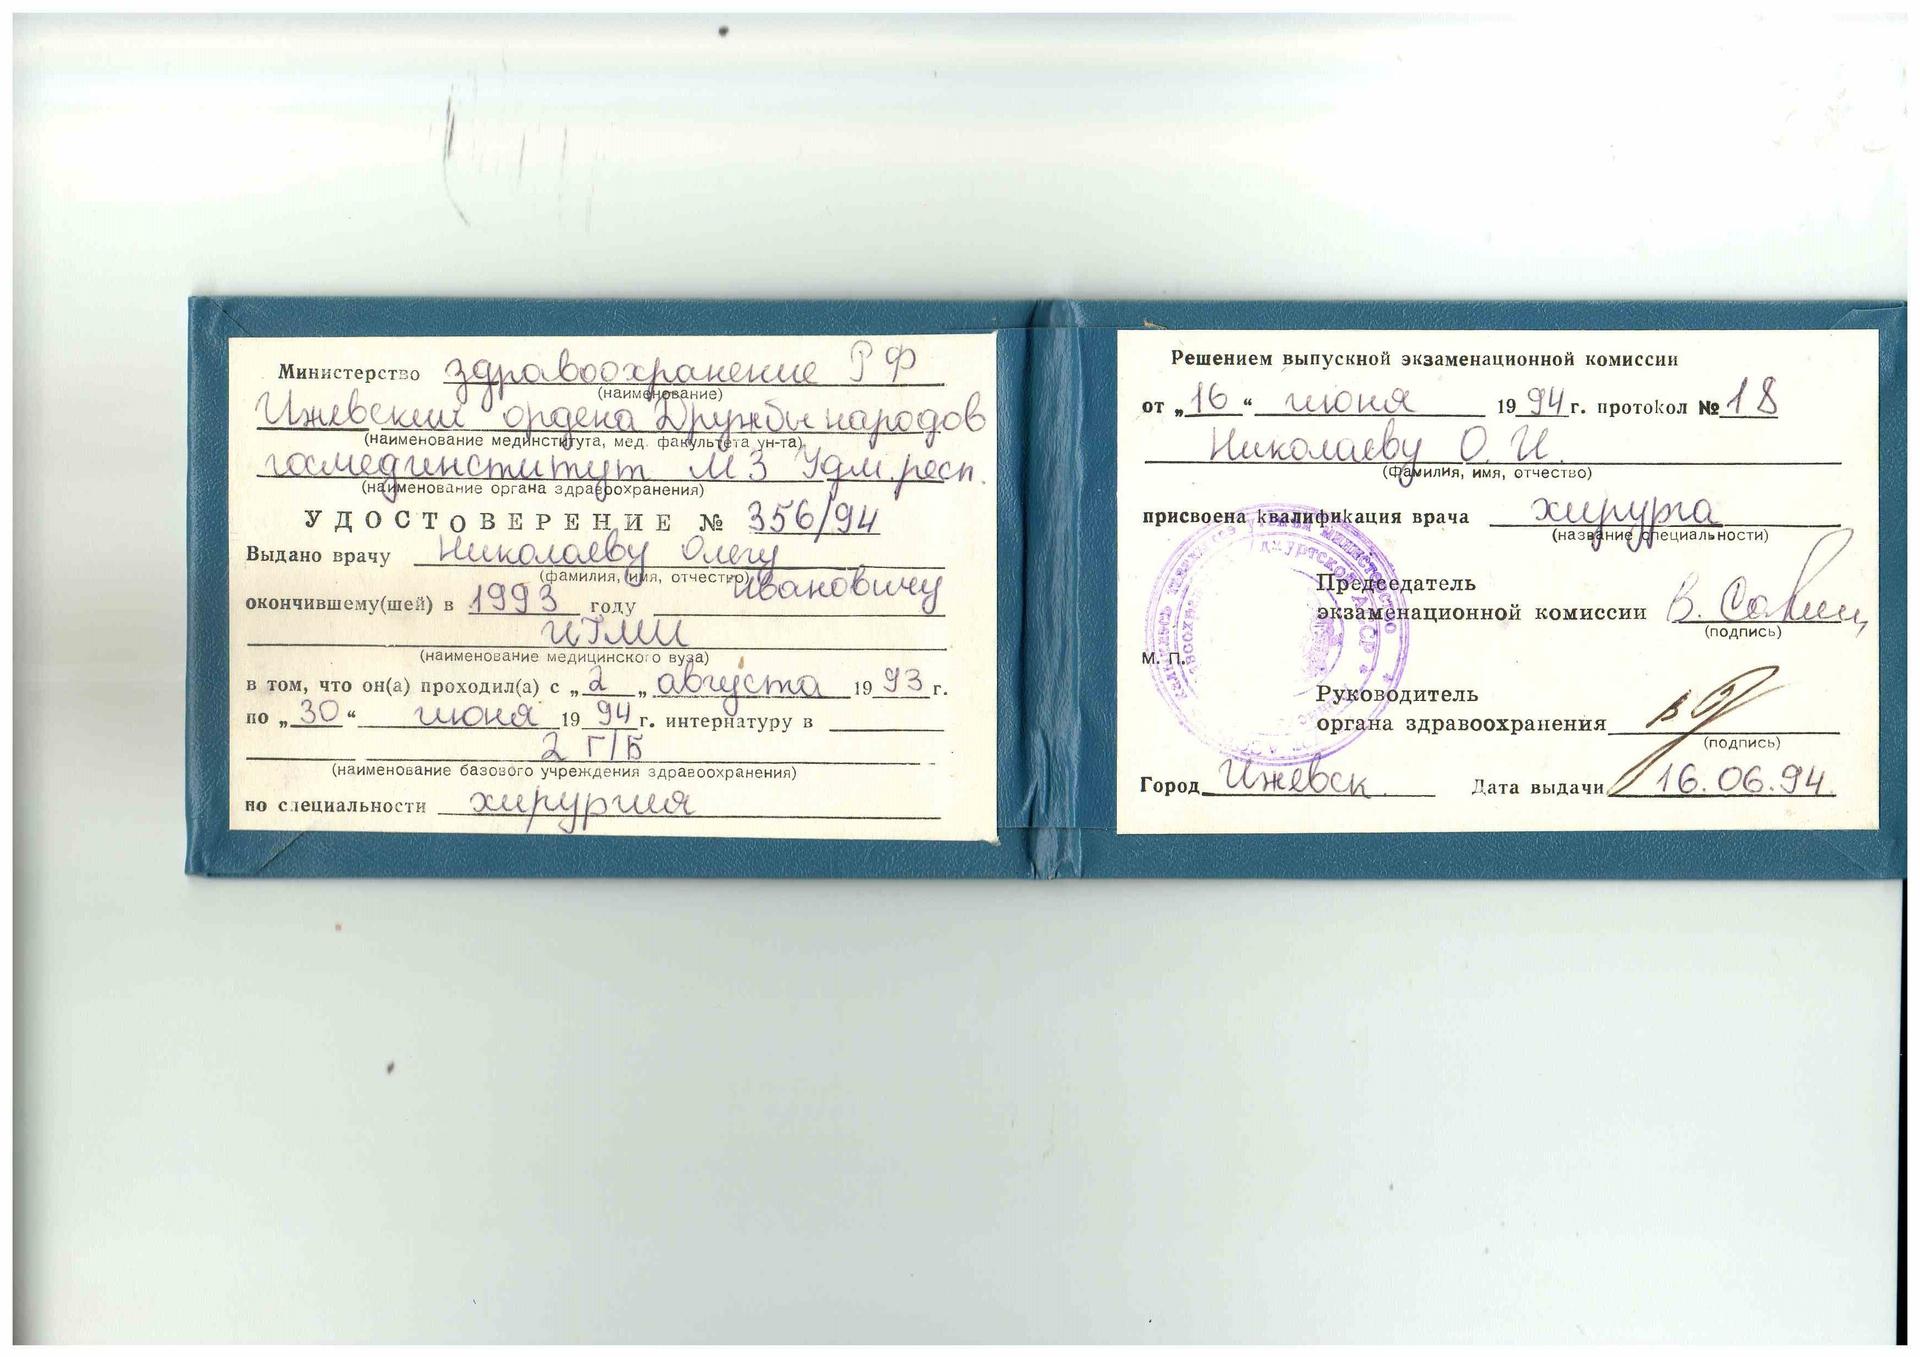 Министерство здравоохранение РФ
(наименование)
Ижевский ордена Дружбы народов
(наименование мединститута, мед. факультета ун-та)
госмединститут МЗ Удм. респ.
(наименование органа здравоохранения)
УДОСТОВЕРЕНИЕ № 356/94
Выдано врачу Николаеву Олегу
(фамилия, имя, отчество)
Ивановичу
окончившему(шей) в 1993 году
ИГМИ
(наименование медицинского вуза)
в том, что он(а) проходил(а) с „2„ августа 1993 г.
по „30“ июня 1994 г. интернатуру в
2 Г/Б
(наименование базового учреждения здравоохранения)
по специальности хирургия
Решением выпускной экзаменационной комиссии
от „16“ июня 1994 г. протокол № 18
Николаеву О. И.
(фамилия, имя, отчество)
присвоена квалификация врача хирурга
(название специальности)
Председатель
экзаменационной комиссии
(подпись)
М. П.
Руководитель
органа здравоохранения
(подпись)
Город Ижевск Дата выдачи 16.06.94.